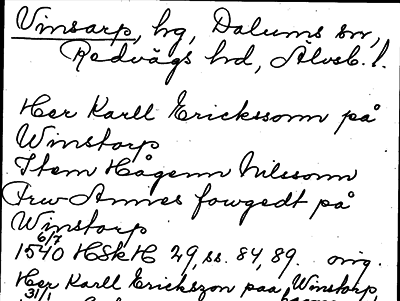 Vinsarp, hg, Dalums sn,
Redvägs hd, Älvsb. l.
Her Karll Ericksonn på
Winstorp
Item Hågenn Nilssonn
Frw Annes fowgedt på
Winstorp
6/7
1540 HSkH 29, ss. 84, 89. orig.
Her Karll Erickszon paa Winstorp,
31/1